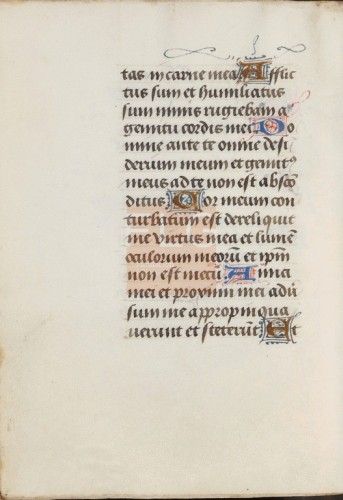 tas in carne mea Afflic
tus sum et humiliatus
sum nimis rugiebam a
gemitu cordis mei Do
mine ante te omne desi
derium meum et gemitꝰ
meus ad te non est abscō
ditus Cor meum con
turbatum est dereliquit
me virtus mea et lumē
oculorum meorū et ip̄m
non est mecū Amici
mei et proximi mei adū
sum me appropinqua
verunt et steterūt Et